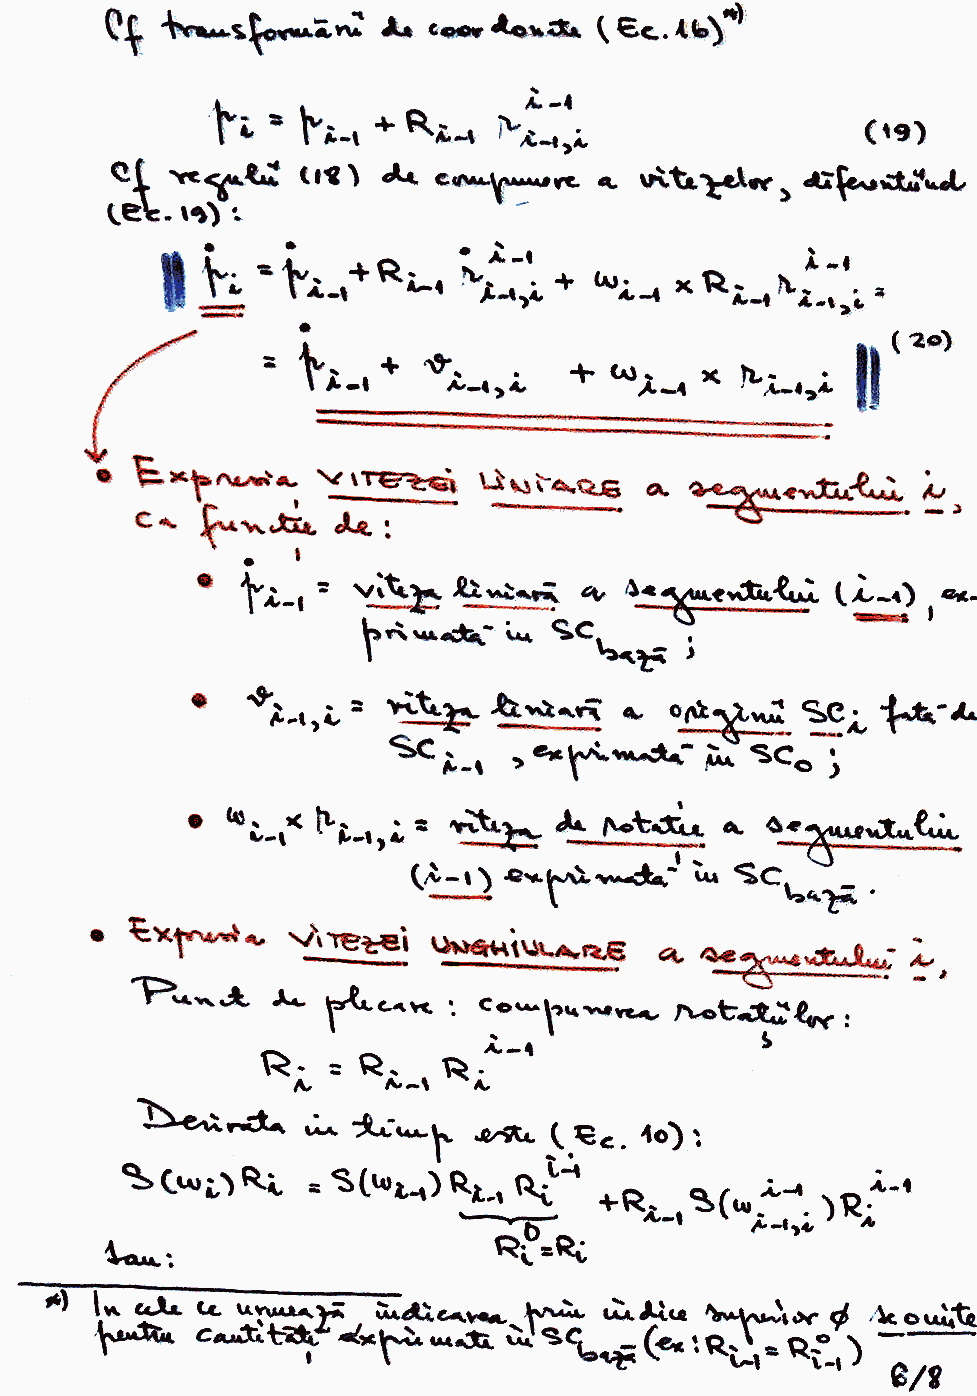 Cf transformării de coordonate (Ec.16)*)
p_i = p_{i-1} + R_{i-1} r_{i-1,i}^{i-1} (19)
Cf regulii (18) de compunere a vitezelor, diferențiind
(Ec.19):
ṗ_i = ṗ_{i-1} + R_{i-1} ṙ_{i-1,i}^{i-1} + ω_{i-1} × R_{i-1} r_{i-1,i}^{i-1} =
= ṗ_{i-1} + v_{i-1,i} + ω_{i-1} × r_{i-1,i} (20)
• Expresia VITEZEI LINIARE a segmentului i,
ca funcție de:
• ṗ_{i-1} = viteza liniară a segmentului (i-1), ex-
primată in SC_{bază};
• v_{i-1,i} = viteza liniară a originii SC_i față de
SC_{i-1}, exprimată in SC_0;
• ω_{i-1} × r_{i-1,i} = viteza de rotație a segmentului
(i-1) exprimată in SC_{bază}.
• Expresia VITEZEI UNGHIULARE a segmentului i.
Punct de plecare: compunerea rotațiilor:
R_i = R_{i-1} R_i^{i-1}
Derivata in timp este (Ec. 10):
S(ω_i) R_i = S(ω_{i-1}) R_{i-1} R_i^{i-1} + R_{i-1} S(ω_{i-1,i}^{i-1}) R_i^{i-1}
R_i^0 = R_i
sau:
*) In cele ce urmează indicarea prin indice superior ∅ se omite
pentru cantități exprimate in SC_{bază} (ex: R_{i-1} = R_{i-1}^0)
6/8